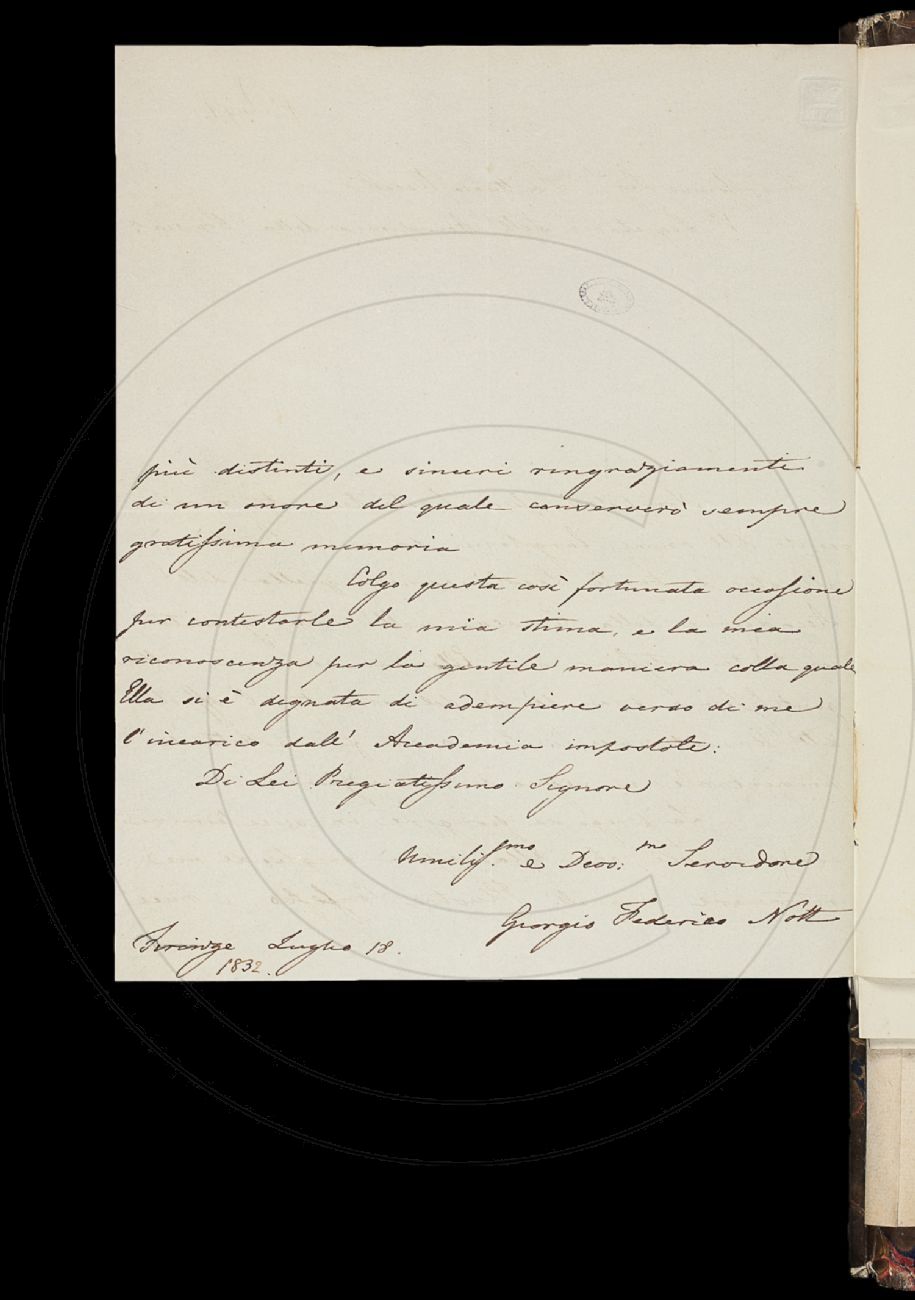 più distinti, e sinceri ringraziamenti
di un onore del quale conserverò sempre
gratissima memoria
Colgo questa così fortunata occasione
per contestarle la mia stima, e la mia
riconoscenza per la gentile maniera colla quale
Ella si è degnata di adempiere verso di me
l'incarico dall' Accademia impostole:
Di Lei Pregiatissimo Signore
Umiliss.mo e Devo:mo Servidore
Giorgio Federico Nott
Firenze Luglio 18.
1832.